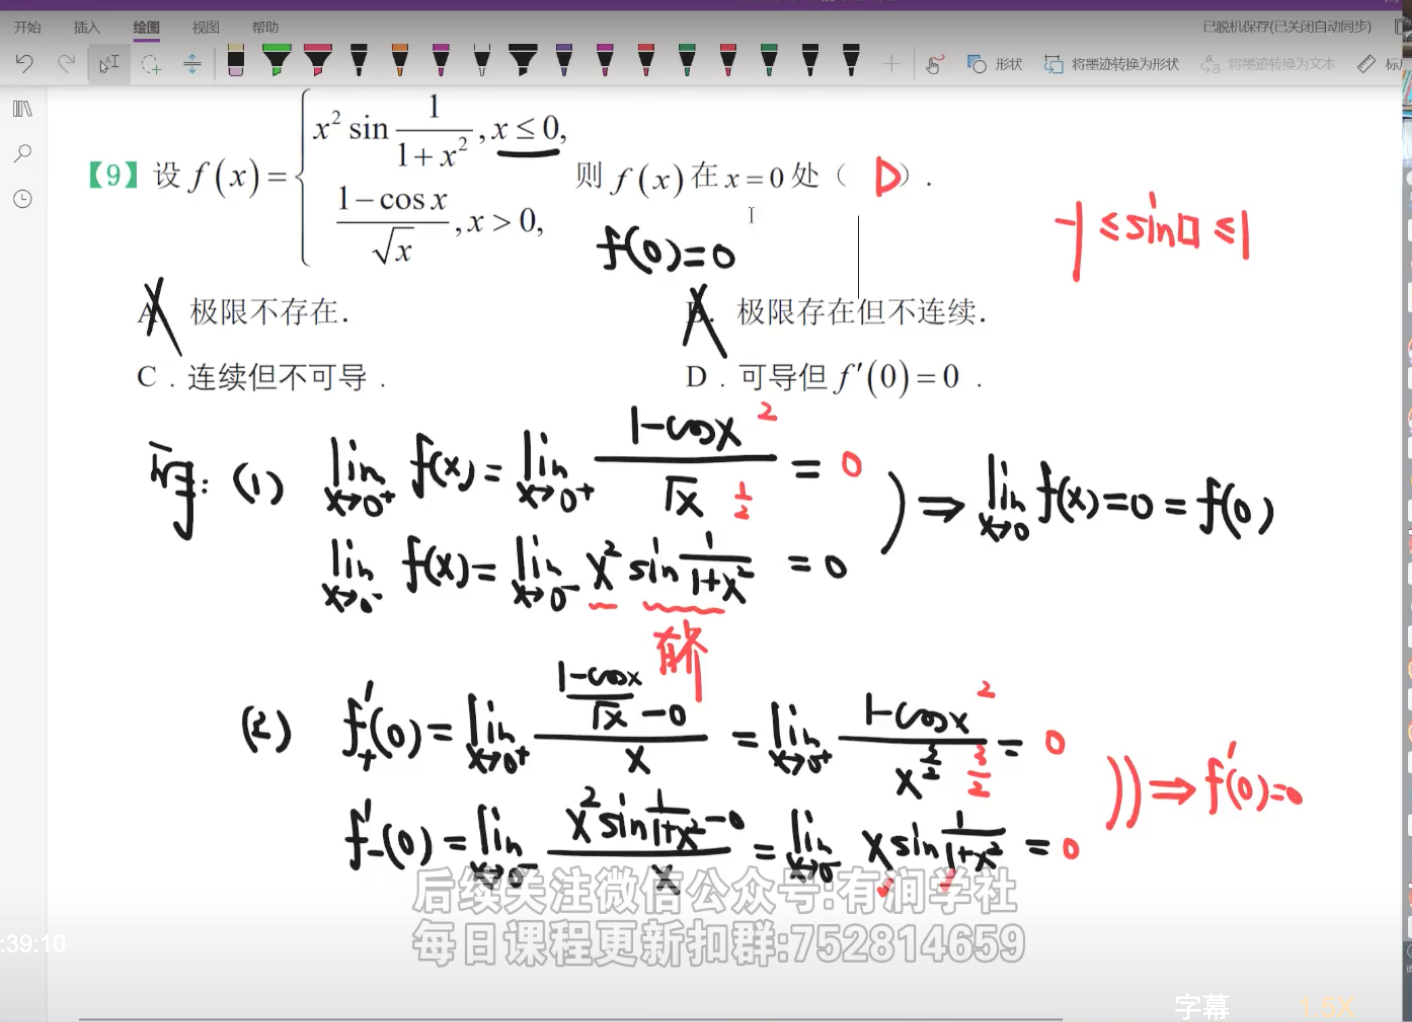 开始 插入 绘图 视图 帮助 已脱机保存(已关闭自动同步)
形状 将墨迹转换为形状 将墨迹转换为文本
【9】设 f(x) = { x² sin 1/(1+x²), x ≤ 0,
(1−cos x)/√x, x > 0,
则 f(x) 在 x = 0 处（ D ）.
f(0)=0
-1 ≤ sin□ ≤ 1
A 极限不存在.
B. 极限存在但不连续.
C . 连续但不可导 .
D . 可导但 f′(0) = 0 .
(1) lim x→0⁺ f(x) = lim x→0⁺ (1-cosx)/√x = 0
2
1/2
lim x→0⁻ f(x) = lim x→0⁻ x² sin 1/(1+x²) = 0
⇒ lim x→0 f(x) = 0 = f(0)
有界
(2) f₊′(0) = lim x→0⁺ ((1-cosx)/√x - 0)/x = lim x→0⁺ (1-cosx)/x^(3/2) = 0
2
3/2
f₋′(0) = lim x→0⁻ (x² sin 1/(1+x²) - 0)/x = lim x→0⁻ x sin 1/(1+x²) = 0
⇒ f′(0)=0
后续关注微信公众号:有润学社
每日课程更新扣群:752814659
:39:10
字幕 1.5X